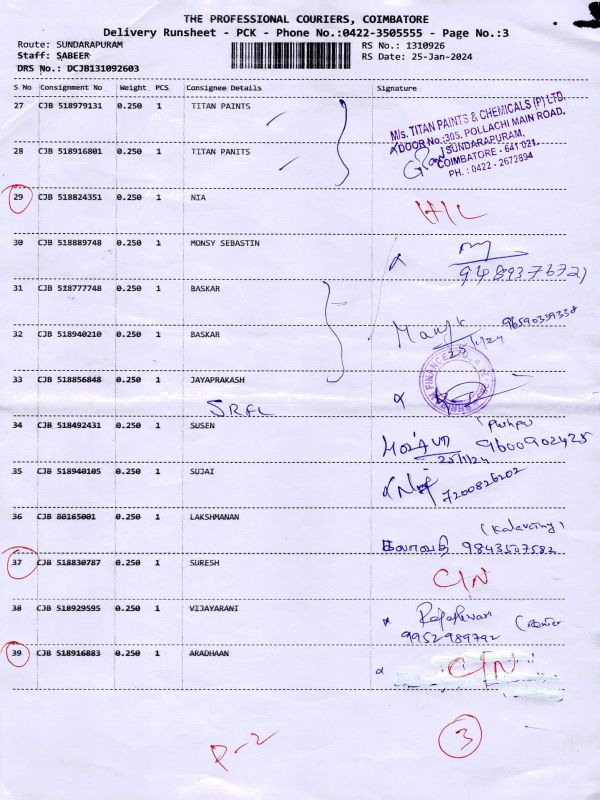 THE PROFESSIONAL COURIERS, COIMBATORE
Delivery Runsheet - PCK - Phone No.:0422-3505555 - Page No.:3
Route: SUNDARAPURAM
RS No.: 1310926
Staff: SABEER
RS Date: 25-Jan-2024
DRS No.: DCJB131092603
S No Consignment No Weight PCS Consignee Details Signature
27 CJB 518979131 0.250 1 TITAN PAINTS
M/s. TITAN PAINTS & CHEMICALS (P) LTD.
DOOR No.:305, POLLACHI MAIN ROAD,
SUNDARAPURAM,
COIMBATORE - 641 021.
PH.: 0422 - 2672894
28 CJB 518916801 0.250 1 TITAN PANITS
29 CJB 518824351 0.250 1 NIA
30 CJB 518889748 0.250 1 MONSY SEBASTIN
31 CJB 518777748 0.250 1 BASKAR
32 CJB 518940210 0.250 1 BASKAR
96590339338
25/1/24
33 CJB 518856848 0.250 1 JAYAPRAKASH
FINANCE
34 CJB 518492431 0.250 1 SUSEN
9600902425
25/1/24
35 CJB 518940105 0.250 1 SUJAI
7200826202
36 CJB 80165001 0.250 1 LAKSHMANAN
கலாவதி 9843507582
37 CJB 518830787 0.250 1 SURESH
C/N
38 CJB 518929595 0.250 1 VIJAYARANI
9952989792
39 CJB 518916883 0.250 1 ARADHAAN
C/N
P-2
3